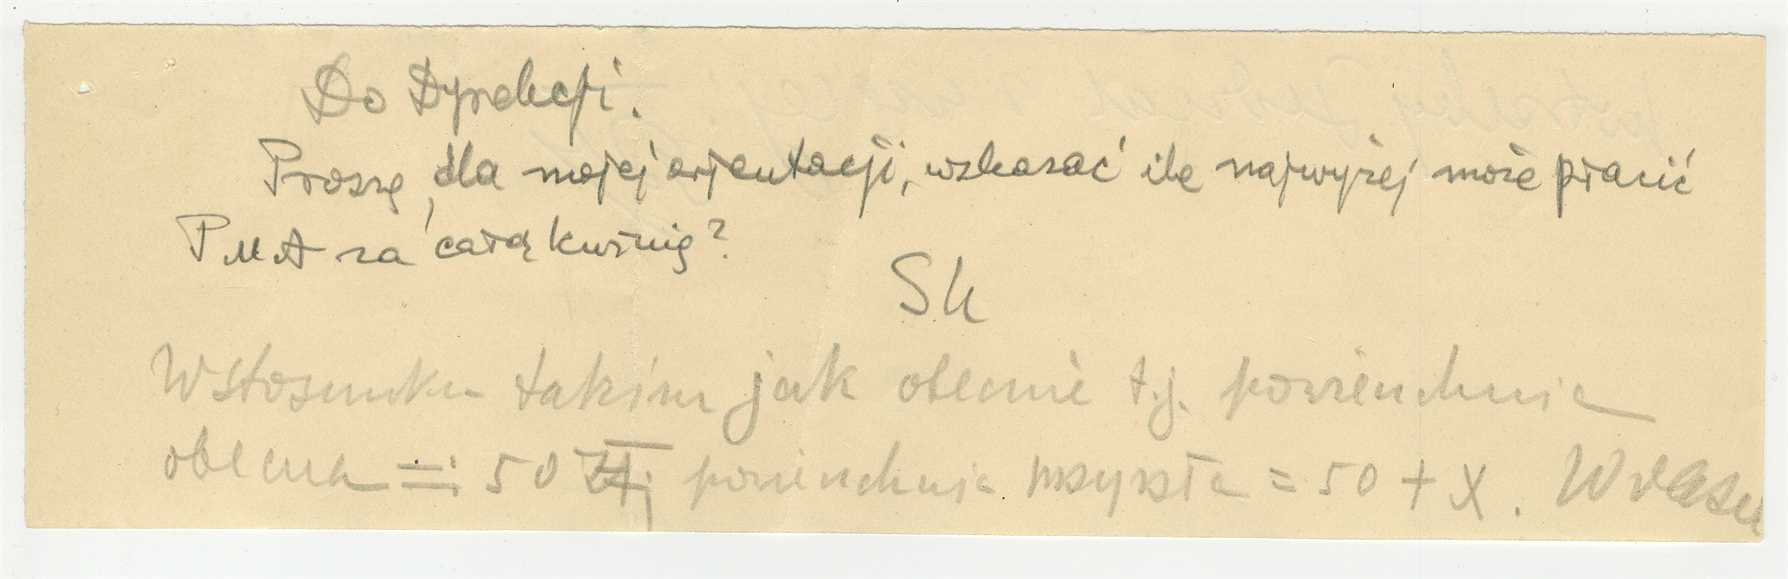 Do Dyrekcji.
Proszę, dla mojej orjentacji, wskazać ile najwyżej może płacić
PMA za całą kuźnię?
Sk
W stosunku takim jak obecnie t.j. powierzchnia
obecna = 50 Zł; powierzchnia przyszła = 50 + X. W razie